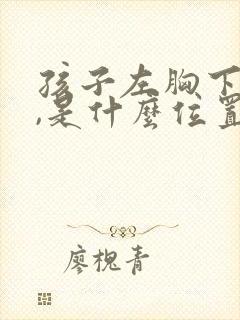 孩子左胸下
,是什麼位置
廖槐青